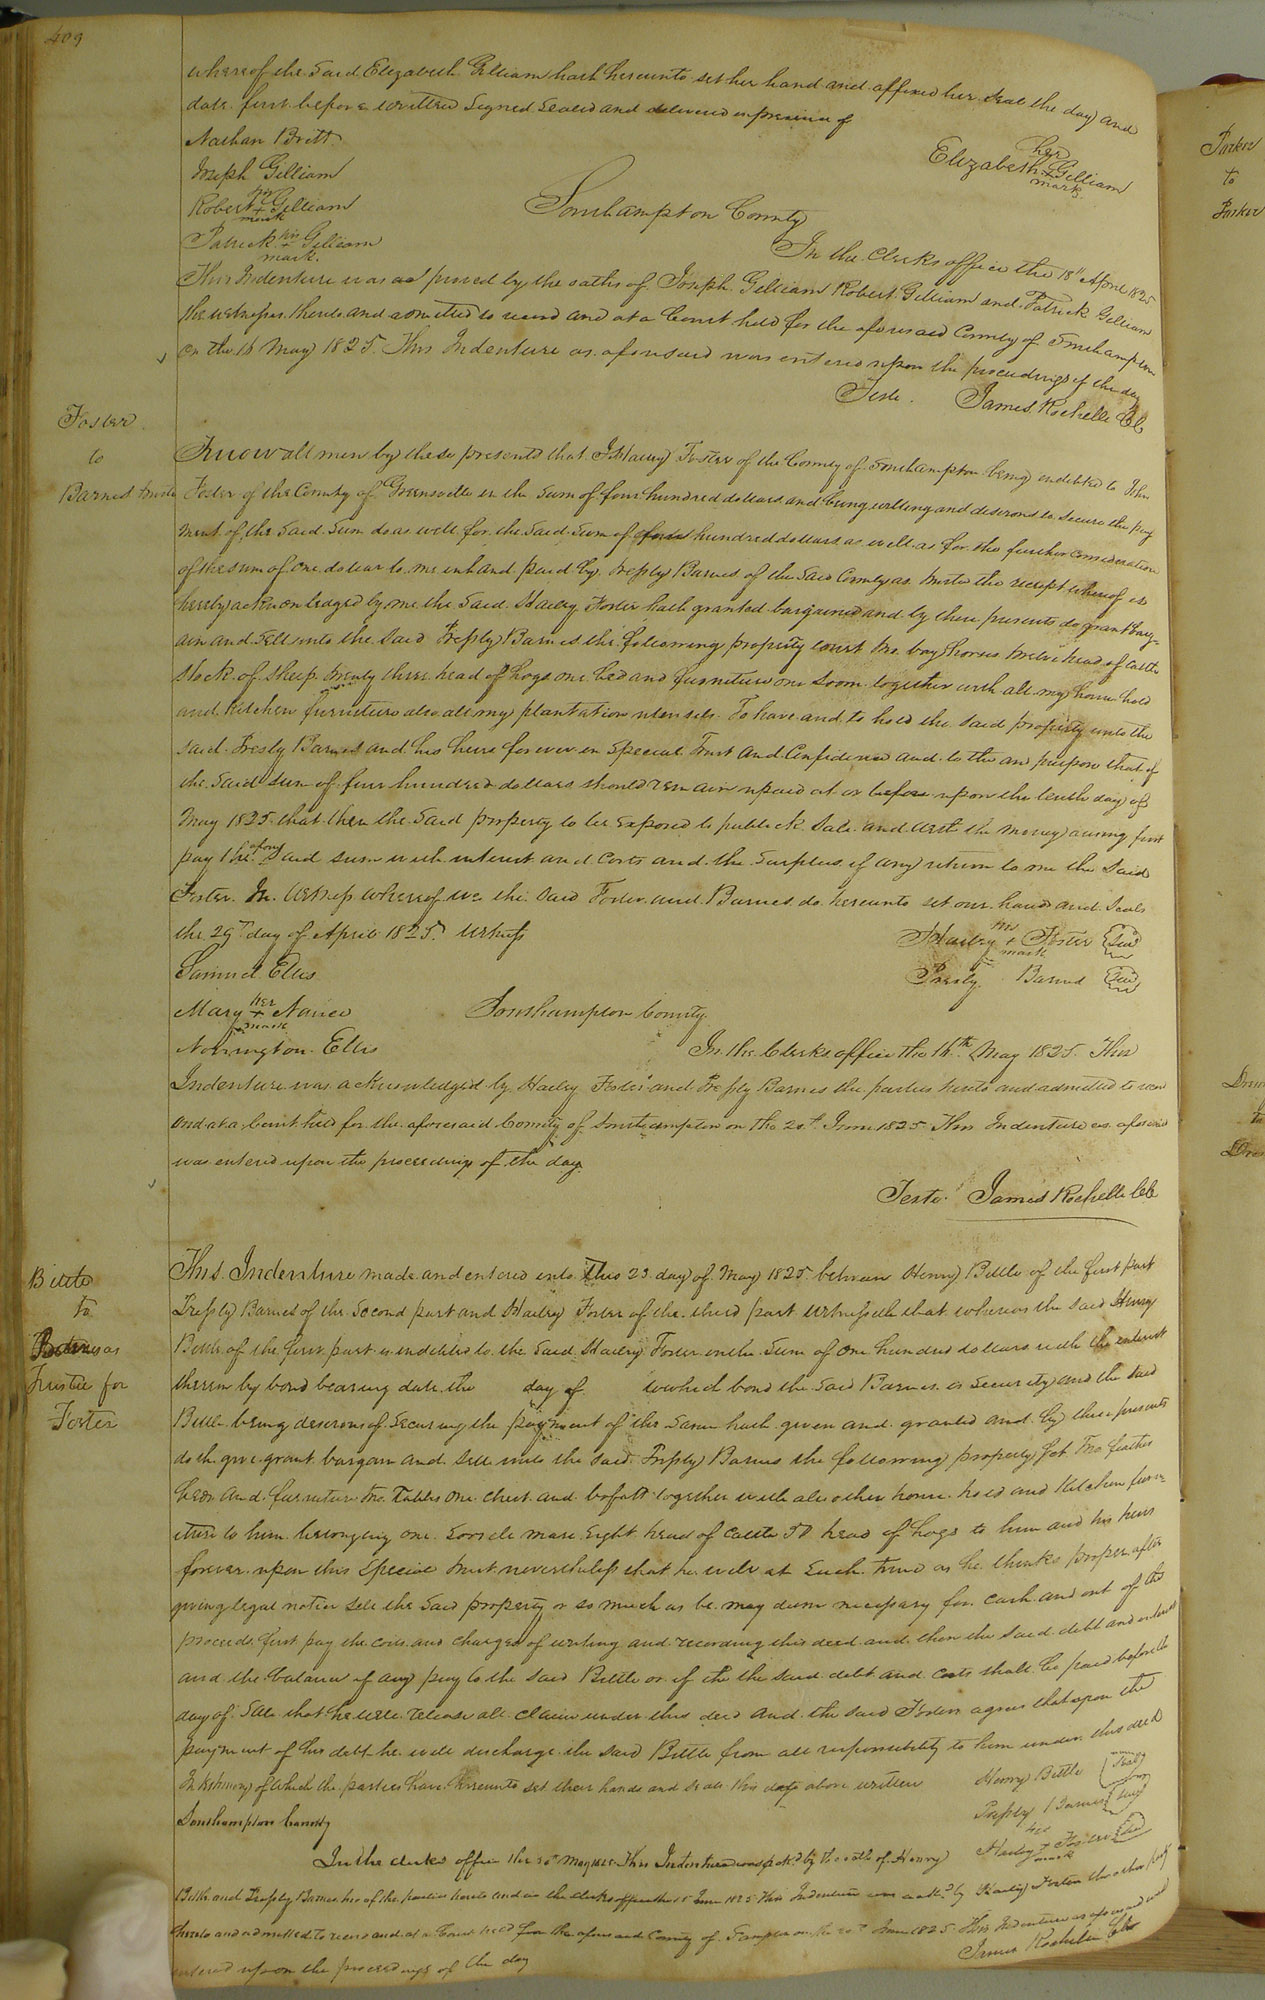 409
whereof the Said Elizabeth Gilliam hath hereunto set her hand and affixed her Seal the day and
date first before written Signed Sealed and delivered in presence of
Nathan Britt
Joseph Gilliam
Elizabeth her + mark Gilliam
Robert his + mark Gilliam
Southampton County
Patrick his + mark Gilliam
In the Clerks office the 18th April 1825
This Indenture was proved by the oaths of Joseph Gilliam Robert Gilliam and Patrick Gilliam
the witnesses thereto and admitted to record and at a Court held for the aforesaid County of Southampton
On the 16 May 1825 This Indenture as aforesaid was entered upon the proceedings of the day
Teste. James Rochelle Clk
Foster
to
Barnes trustee
Know all men by these presents that I Hailey Foster of the County of Southampton being indebted to John
Foster of the County of Greensville in the Sum of four hundred dollars and being willing and desirous to secure the pay
ment of the Said Sum do as well for the Said Sum of four hundred dollars as well as for the further consideration
of the sum of One dollar to me in hand paid by Presly Barnes of the Said County as trustee the receipt whereof is
hereby acknowledged by me the Said Hailey Foster hath granted bargained and by these presents do grant barg-
ain and Sell unto the Said Presly Barnes the following property towit two bay horses twelve head of cattle
Stock of Sheep twenty three head of hogs one bed and furniture one Loom together with all my house hold
and Kitchen furniture also all my plantation utensils To have and to hold the Said property unto the
said Presly Barnes and his heirs forever in Special Trust and Confidence and to the purpose that if
the Said Sum of four hundred dollars should remain unpaid at or before upon the tenth day of
May 1825 that then the Said property to be Exposed to publick Sale and with the money arising first
pay the fore Said sum with interest and Costs and the Surplus if any return to me the Said
Foster In Witness whereof we the Said Foster and Barnes do hereunto set our hands and Seals
the 29th day of April 1825 Witness
Hailey his + mark Foster Seal
Samuel Ellis
Presly Barnes Seal
Mary her + mark Nance
Southampton County
Norrington Ellis
In the Clerks office the 14th May 1825 This
Indenture was acknowledged by Hailey Foster and Presly Barnes the parties hereto and admitted to record
and at a Court held for the aforesaid County of Southampton on the 20th June 1825 This Indenture as aforesaid
was entered upon the proceedings of the day
Teste. James Rochelle Clk
Bittle
to
Barnes as
Trustee for
Foster
This Indenture made and entered into this 23 day of May 1825 between Henry Bittle of the first part
Presly Barnes of the Second part and Hailey Foster of the third part witnesseth that whereas the said Henry
Bittle of the first part is indebted to the Said Hailey Foster in the Sum of One hundred dollars with the interest
thereon by bond bearing date the day of to which bond the Said Barnes is Security and the Said
Bittle being desirous of Securing the payment of the Same hath given and granted and by these presents
doth give grant bargain and Sell unto the Said Presly Barnes the following property Two feather
beds and furniture two Tables One Chest and bofatt together with all other house hold and Kitchen furn-
iture to him belonging one Sorrell mare Eight head of Cattle 50 head of hogs to him and his heirs
forever upon this Special trust nevertheless that he will at Such time as he thinks proper after
giving legal notice Sell the Said property or so much as he may deem necessary for cash and out of the
proceeds first pay the costs and charges of writing and recording this deed and then the Said debt and interest
and the balance if any pay to the Said Bittle or if the the said debt and costs shall be paid before the
day of Sale that he will release all Claim under this deed and the Said Foster agrees that upon the
payment of his debt he will discharge the Said Bittle from all responsibility to him under this deed
In testimony of which the parties have hereunto set their hands and Seals this date above written
Henry Bittle Seal
Presly Barnes Seal
Hailey his + mark Foster Seal
Southampton County
In the clerks office the 30th May 1825 This Indenture was by the oath of Henry
Bittle and Presly Barnes two of the parties hereto and in the clerks office the 15 June 1825 this Indenture was ackd by Hailey Foster the other party
thereto and admitted to record and at a Court held for the aforesaid County of Sampton on the 20th June 1825 This Indenture as aforesaid was
entered upon the proceedings of the day
James Rochelle Clk
Parker
to
Parker